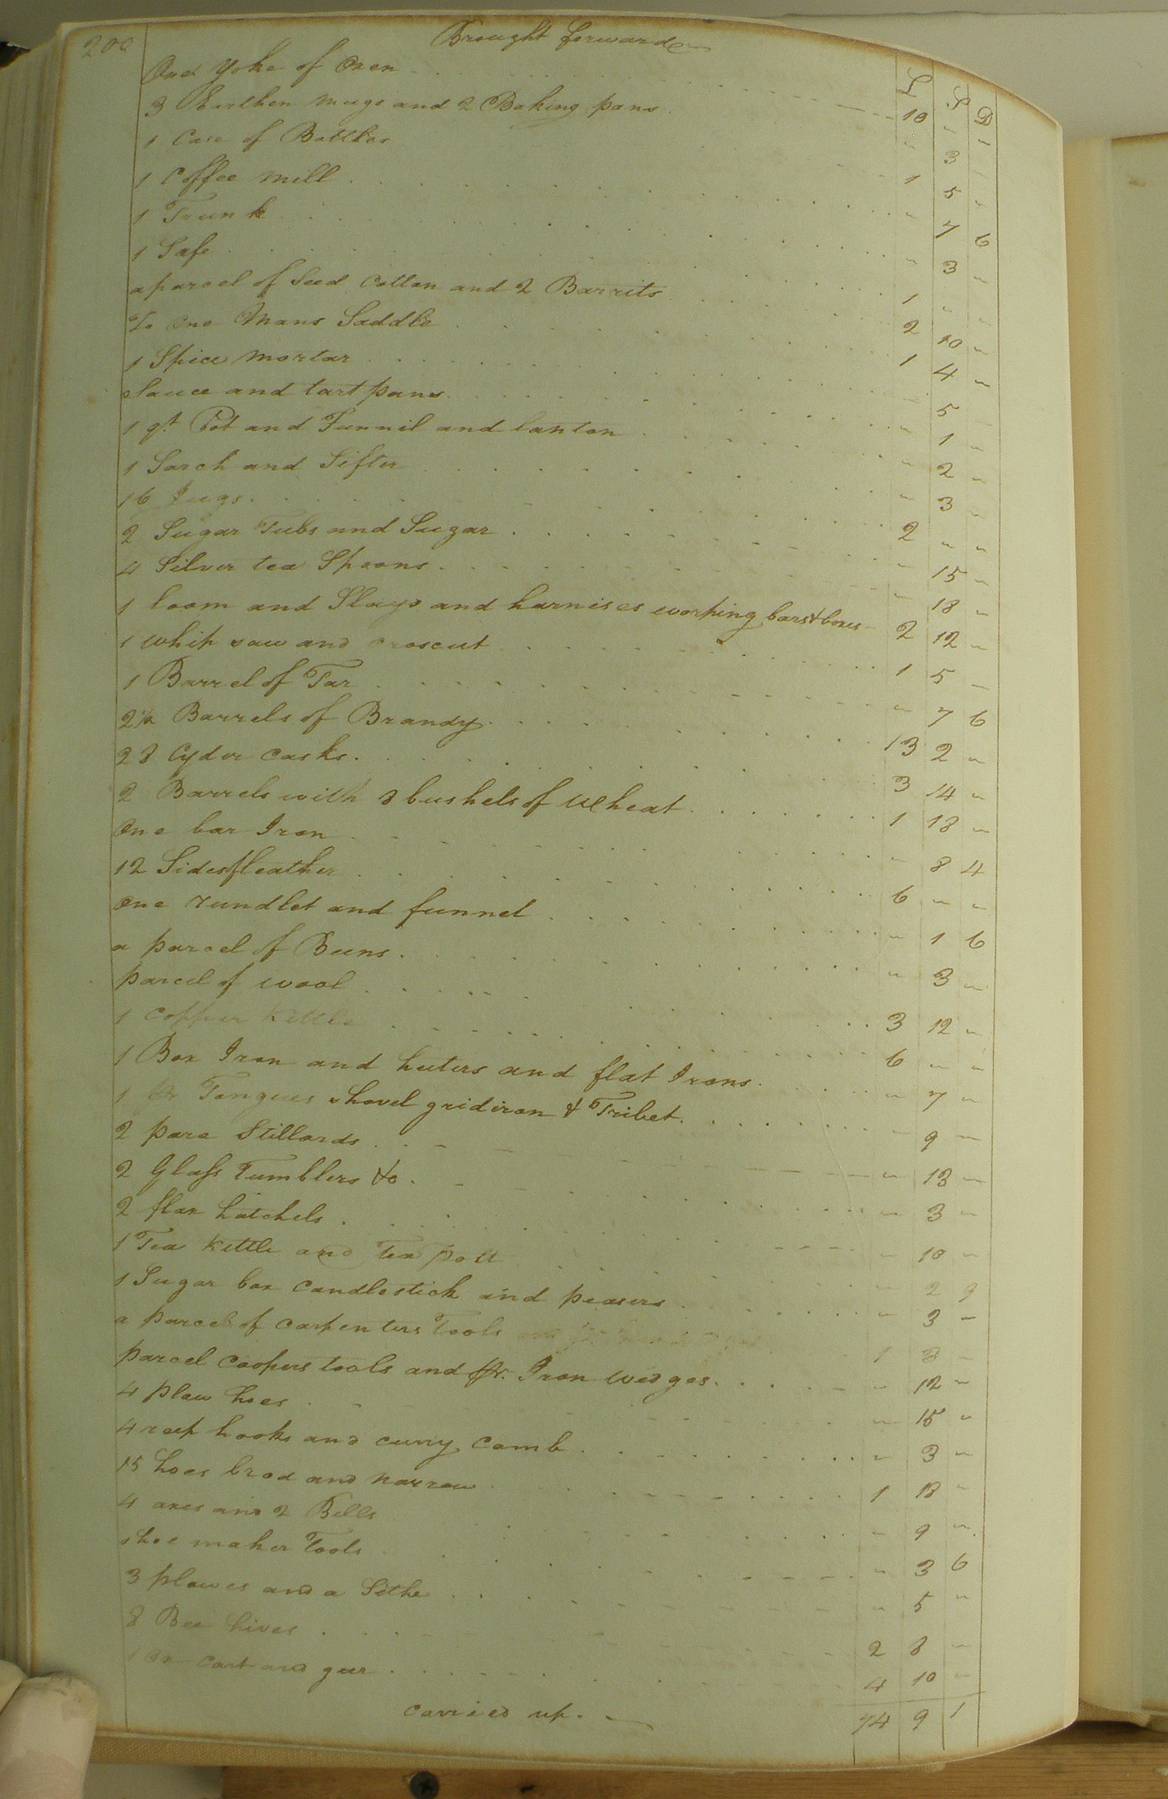 200 Brought forward
L S D
One Yoke of Oxen 10 " "
3 Earthen mugs and 2 Baking pans " 3 "
1 Case of Bottles 1 5 "
1 Coffee mill " 7 6
1 Trunk " 3 "
1 Safe 1 " "
a parcel of Seed Cotton and 2 Barrits 2 10 "
To One Mans Saddle 1 4 "
1 Spice mortar " 5 "
Sauce and tart pans " 1 "
1 qt Pot and Funnil and lanton " 2 "
1 Sarch and Sifter " 3 "
16 Jugs 2 " "
2 Sugar Tubs and Sugar " 15 "
4 Silver tea Spoons " 18 "
1 loom and Slays and harnises worping bars & boxes 2 12 "
1 whip saw and croscut 1 5 "
1 Barrel of Tar " 7 6
2½ Barrels of Brandy 13 2 "
28 Cyder casks 3 14 "
2 Barrels with 8 bushels of Wheat 1 18 "
One bar Iron " 8 4
12 Sides of leather 6 " "
One rundlet and funnel " 1 6
a parcel of Beens " 3 "
parcel of wool 3 12 "
1 Copper Kittle 6 " "
1 Box Iron and heters and flat Irons " 7 "
1 Pr Tongues shovel gridiron & Tribet " 9 "
2 pare Stillards " 13 "
2 Glass Tumblers &c " 3 "
2 flax hatchels " 10 "
1 Tea Kettle and Tea pott " 2 9
1 Sugar box candlestick and " 3 "
a parcel of carpenters Tools 1 8 "
parcel coopers tools and pr. Iron wedges " 12 "
4 plow hoes " 15 "
4 reap hooks and curry comb " 3 "
15 hoes brod and narrow 1 18 "
4 axes and 2 Bells " 9 "
shoe maker Tools " 3 6
3 plowes and a Sithe " 5 "
8 Bee hives 2 8 "
1 Ox cart and geer 4 10 "
carried up. 74 9 1